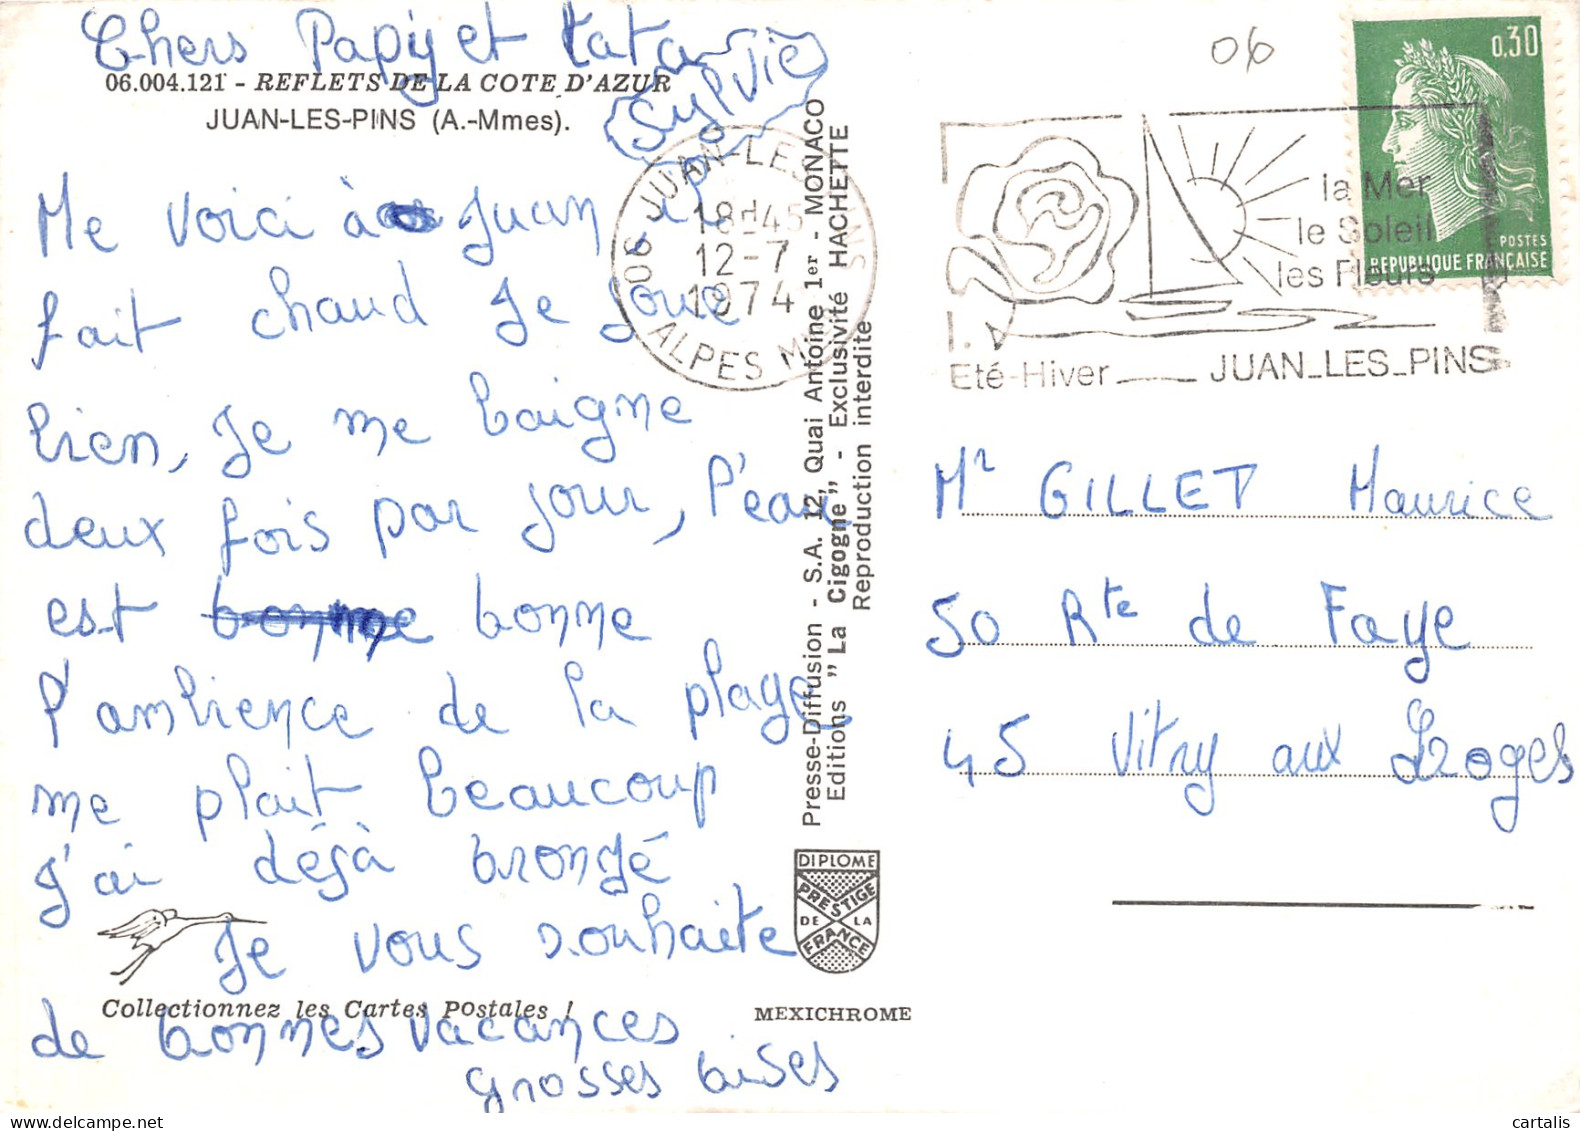 Chers Papy et tata
Sylvie
06.004.121 - REFLETS DE LA COTE D'AZUR
JUAN-LES-PINS (A.-Mmes).
Me voici à Juan il
fait chaud Je joue
bien, Je me baigne
deux fois par jour, l'eau
est bonne bonne
l'ambience de la plage
me plait beaucoup
J'ai déjà bronzé
Je vous souhaite
de bonnes vacances
grosses bises
Collectionnez les Cartes Postales !
06 JUAN-LES-PINS
18H45
12-7
1974
ALPES MMES
Presse-Diffusion - S.A. 12, Quai Antoine 1er - MONACO
Editions "La Cigogne" - Exclusivité HACHETTE
Reproduction interdite
DIPLOME
PRESTIGE
DE LA
FRANCE
MEXICHROME
06
0.30
POSTES
REPUBLIQUE FRANÇAISE
la Mer
le Soleil
les Fleurs
Eté-Hiver JUAN_LES_PINS
Mr GILLET Maurice
50 Rte de Faye
45 Vitry aux Loges
cartalis